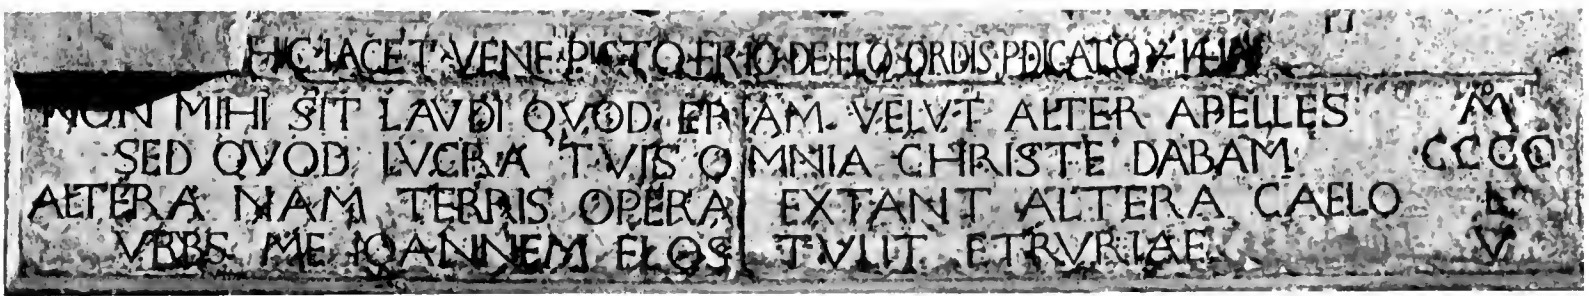 HIC IACET VENE PICTO FR IO DE FLO ORDIS PDICATO
NON MIHI SIT LAVDI QVOD ERAM VELVT ALTER APELLES M
SED QVOD LVCRA TVIS OMNIA CHRISTE DABAM CCCC
ALTERA NAM TERRIS OPERA EXTANT ALTERA CAELO L
VRBS ME IOANNEM FLOS TVLIT ETRVRIAE V